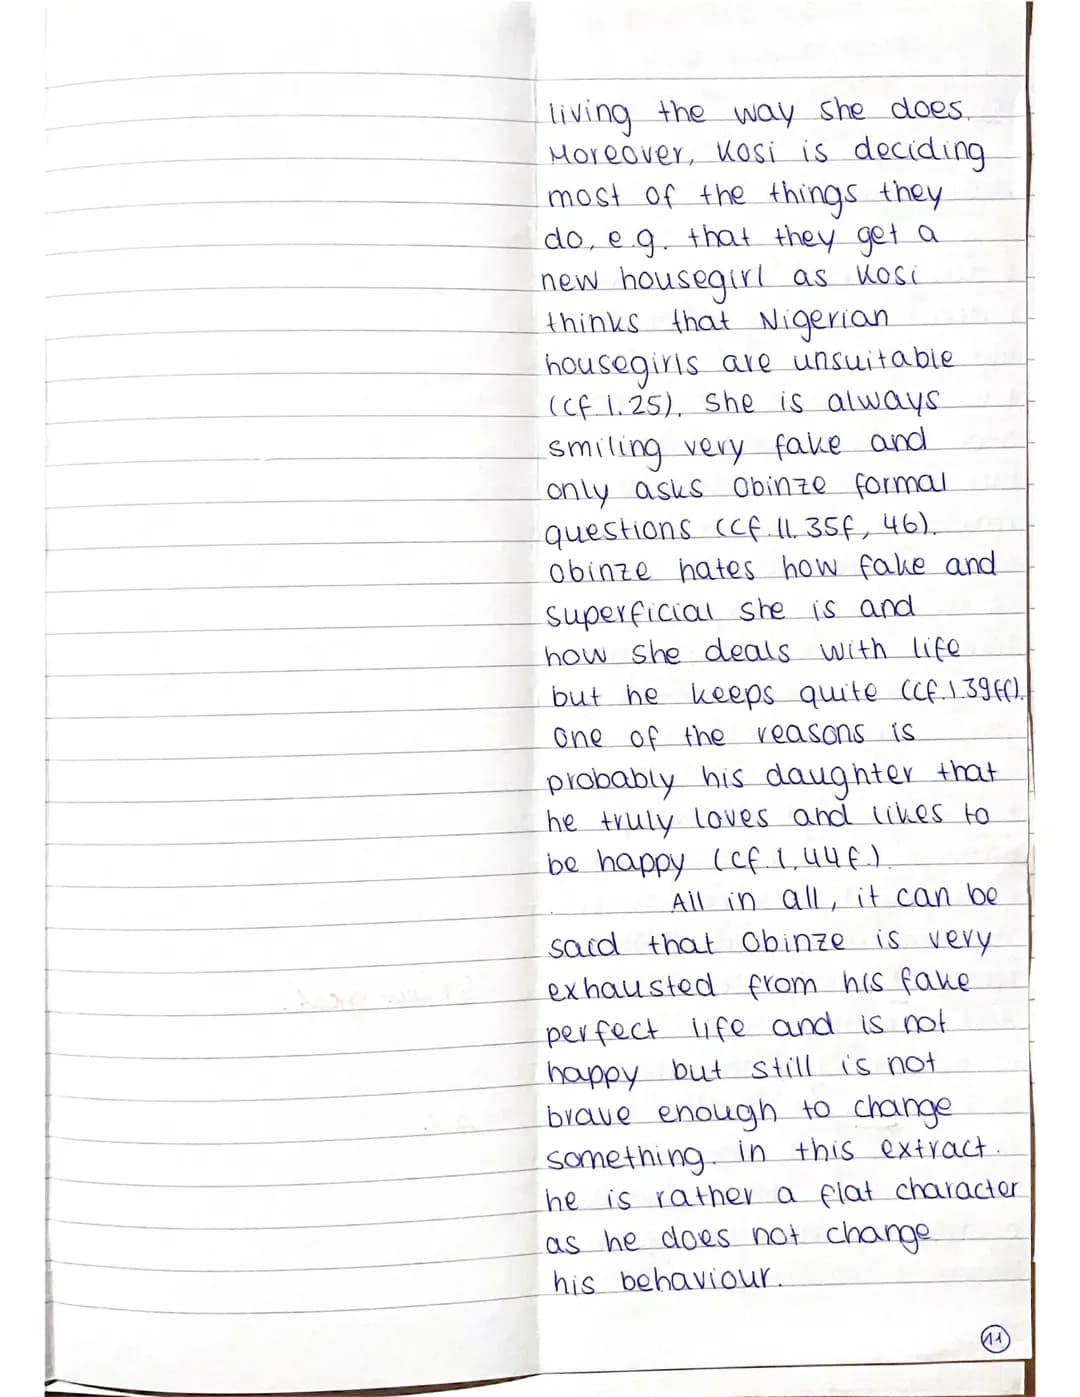 living the way she does.
Moreover, Kosi is deciding
most of the things they
do, e.g. that they get a
new housegirl as Kosi
thinks that Nigerian
housegirls are unsuitable
(cf l. 25). She is always
smiling very fake and
only asks Obinze formal
questions (cf. ll. 35f, 46).
Obinze hates how fake and
superficial she is and
how she deals with life
but he keeps quite (cf. l. 39ff).
One of the reasons is
probably his daughter that
he truly loves and likes to
be happy (cf. l. 44f.).
All in all, it can be
said that Obinze is very
exhausted from his fake
perfect life and is not
happy but still is not
brave enough to change
something. in this extract.
he is rather a flat character
as he does not change
his behaviour.
11